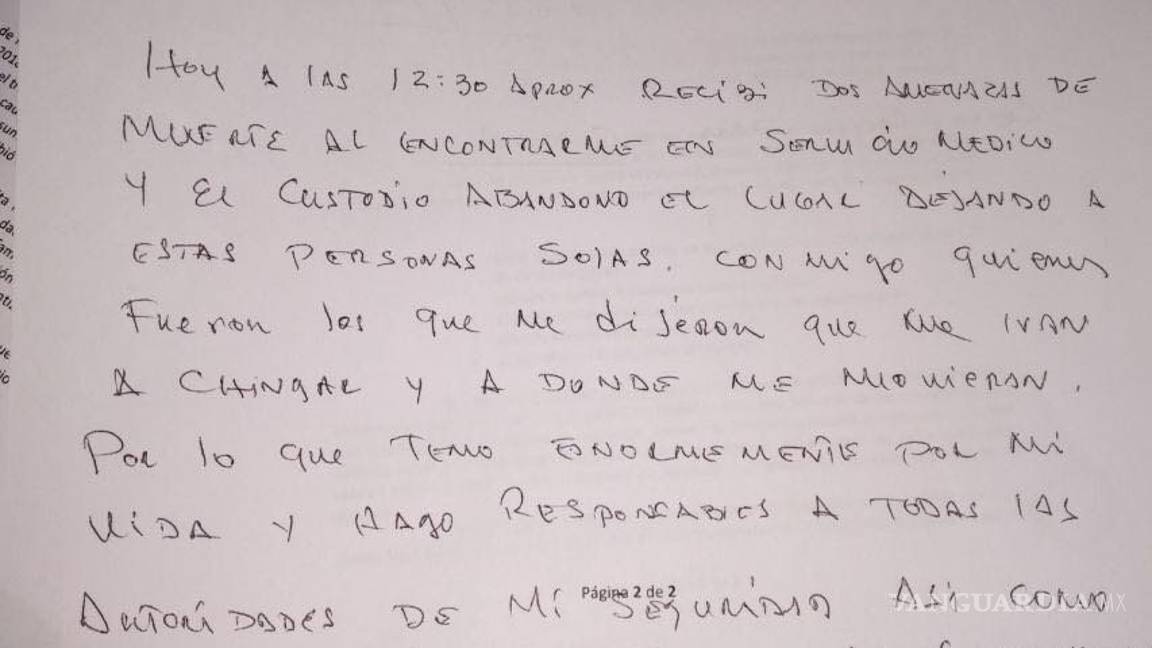 Hoy A lAS 12:30 Aprox RECiBi DOS AMENAZAS DE
MUERTE AL ENCONTRARME EN SERVicio MEDICO
Y El CUSTODIO ABANDONO EL LUGAR DEJANDO A
ESTAS PERSONAS SOlAS. CON MIgo quienes
Fueron los que me dijeron que me IVAN
A CHiNgAR Y A DONDE ME MOVIERAN.
Por lo que TEMO ENORMEMENTE POR Mi
ViDA Y HAgo RESPONSABlES A TODAS lAS
AUTORiDADES DE Mi SEgURiDAD ASi COMO
Página 2 de 2
VANGUARDIA.MX